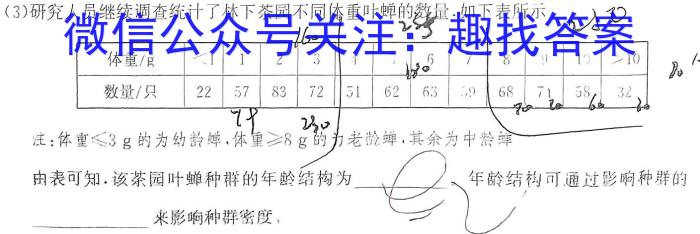 (3)研究人员继续调查统计了林下茶园不同体重叶蝉的数量,如下表所示
微信公众号关注：趣找答案
体重/g 1 2 3 6 7 8 10
数量/只 22 57 83 72 51 62 63 59 68 71 58 32
注:体重≤3 g的为幼龄蝉,体重≥8 g的为老龄蝉,其余为中龄蝉
由表可知,该茶园叶蝉种群的年龄结构为 年龄结构可通过影响种群的
来影响种群密度。